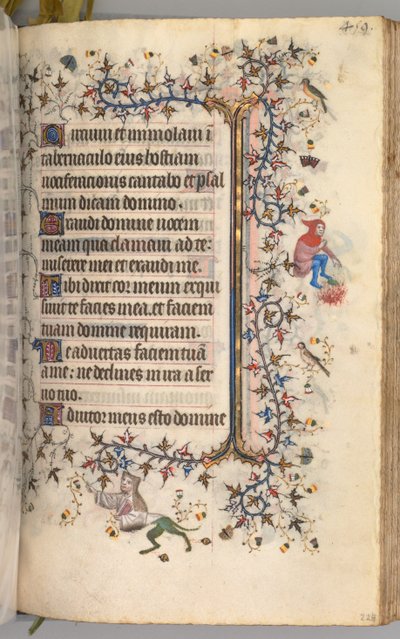 459.
Circuiui et immolaui ī
tabernaculo eius hostiam
uociferacionis cantabo et psal
mum dicam domino.
Exaudi domine uocem
meam qua clamaui ad te:
miserere mei et exaudi me.
Tibi dixit cor meum exqui
siuit te facies mea. et faciem
tuam domine requiram.
Ne aduertas faciem tuā
a me: ne declines in ira a ser
uo tuo.
Adiutor meus esto domine